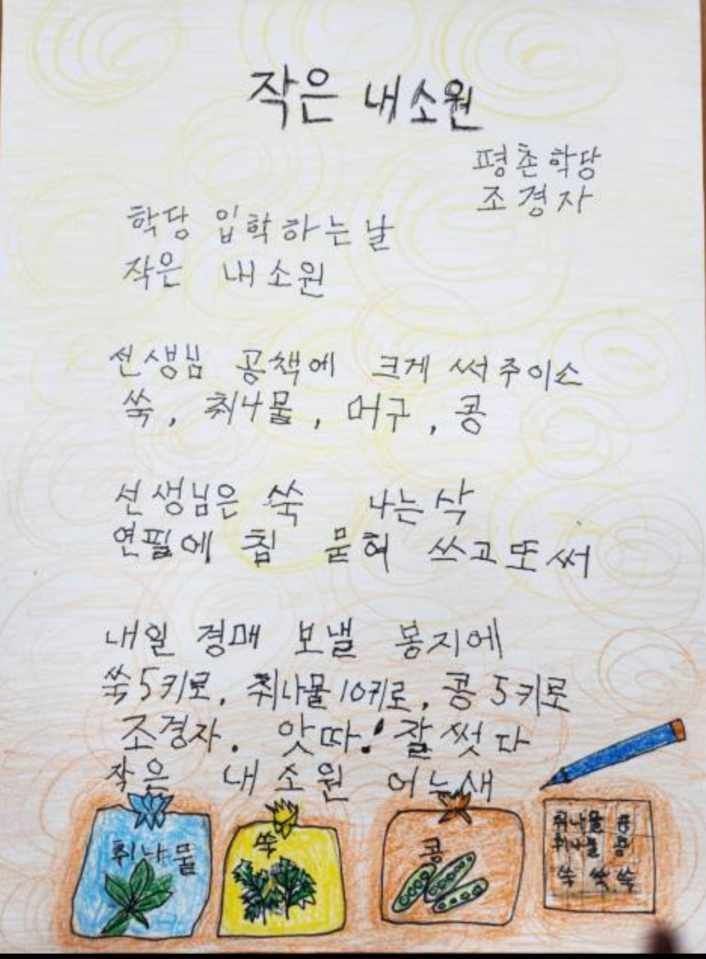 작은 내소원
평촌학당
조경자
학당 입학하는날
작은 내소원
선생님 공책에 크게 써주이소
쑥, 취나물, 머구, 콩
선생님은 쑥 나는 삭
연필에 침 묻혀 쓰고또써
내일 경매 보낼 봉지에
쑥5키로, 취나물10키로, 콩5키로
조경자. 앗따! 잘썻다
작은 내소원 어느새
취나물
쑥
콩
취나물 콩
취나물 콩
쑥 쑥 쑥